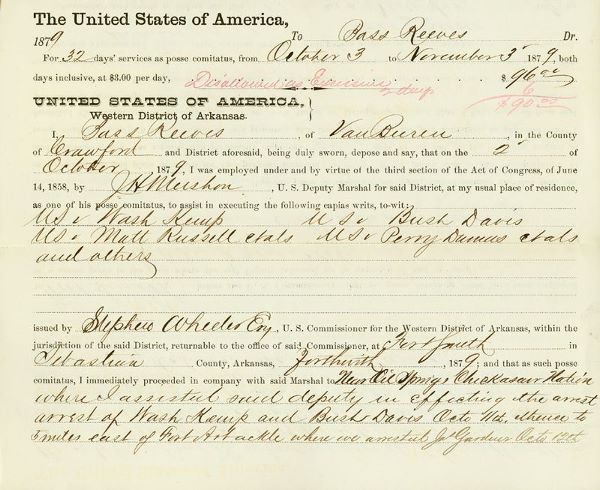 The United States of America,
1879 To Bass Reeves Dr.
For 32 days' services as posse comitatus, from October 3 to November 3d 1879, both
days inclusive, at $3.00 per day, $ 96 00
Disallowed as Excessive 2 days 6
$90.00
UNITED STATES OF AMERICA,
Western District of Arkansas.
I, Bass Reeves, of Van Buren, in the County
of Crawford and District aforesaid, being duly sworn, depose and say, that on the 2d of
October 1879, I was employed under and by virtue of the third section of the Act of Congress, of June
14, 1858, by J H Mershon, U. S. Deputy Marshal for said District, at my usual place of residence,
as one of his posse comitatus, to assist in executing the following capias writs, to-wit:
US v Wash Kemp US v Bush Davis
US v Matt Russell et als US v Perry et als
and others
issued by Stephen Wheeler Esq, U. S. Commissioner for the Western District of Arkansas, within the
jurisdiction of the said District, returnable to the office of said Commissioner, at Fort Smith in
Sebastian County, Arkansas, Forthwith, 1879; and that as such posse
comitatus, I immediately proceeded in company with said Marshal to Near Oil Springs Chickasaw Nation
where I assisted said deputy in effecting the arrest
arrest of Wash Kemp and Bush Davis Octo thence to
5 miles east of Fort where we arrested Jo Gardner Octo 12th